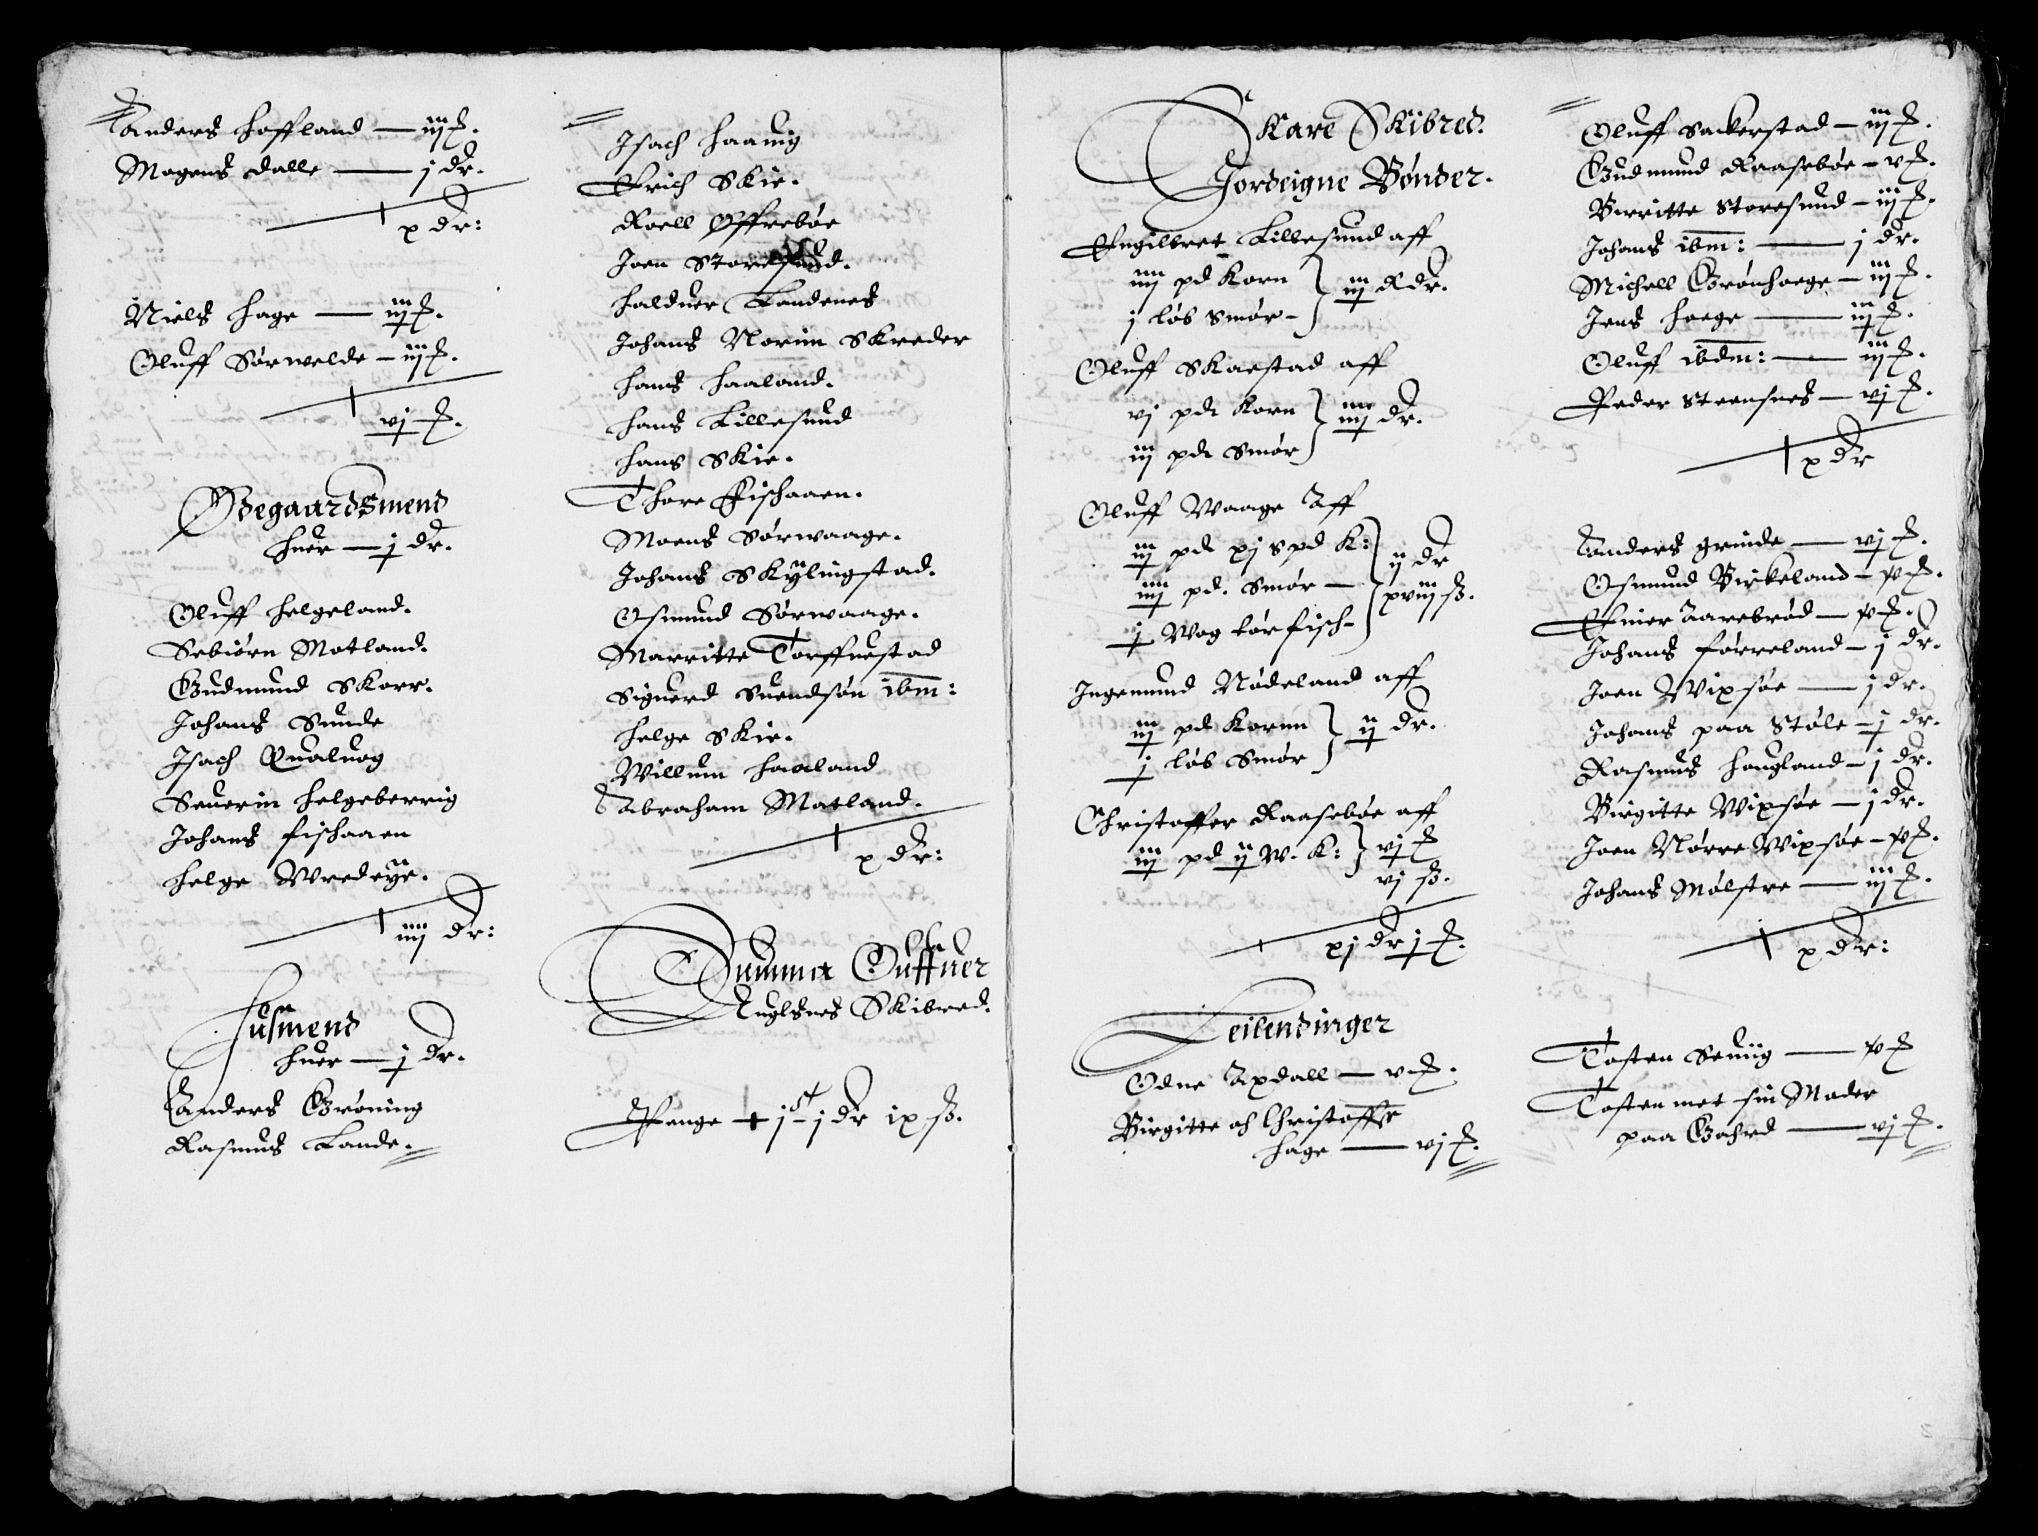 Anders Hoffland — iij ₰.
Mogens Dalle — j dr.
x dr:
Niels Hage — iij ₰.
Oluff Sørwelde — iij ₰.
vj ₰.
Ødegaardsmend
huer — j dr.
Oluff Helgeland.
Sebiørn Matland.
Gudmund Skorr.
Johans Sunde
Isach Qualuog
Seuerin Helgeberrig
Johans Fischaaen
Helge Wredeÿe.
iiij dr:
Husmend
huer — j dr.
Anders Grøning
Rasmus Lande.
Isach Haauig
Erich Skie.
Roell Øffrebøe
Joen Storesund.
Halduer Landenes
Johans Norim Skreder
Hans Haaland.
Hans Lillesund
Hans Skie.
Thore Fischaaen.
Moens Sørwaage.
Johans Skÿlingstad.
Osmund Sørwaage.
Marritte Torffuestad
Siguerd Suendsøn ibm:
Helge Skie.
Willum Haaland
Abraham Matland.
x dr:
Summa Offuer
Auglsnes Skibred.
Penge — j C j dr ix ß.
Skare Skibred.
Jordeigne Bønder.
Engilbret Lillesund aff
iiij pd Korn } iij Rdr.
j løb Smør –
Oluff Skaestad aff
vj pdt Korn } iiij dr.
iij pdt Smør
Oluff Waage Aff
iij pdt xj spd K: } ij dr
iiij pd. Smør — xviij ß.
j Wog tørfisch –
Ingemund Nødeland aff
iij pd Kornn } ij dr.
j løb Smør
Christoffer Raasebøe aff
iij pd ij W. K: } vj ₰
vj ß.
xj dr j ₰.
Leilendinger
Odne Axdall — v ₰.
Birgitte och Christoffer
Hage — vj ₰.
Oluff Sackerstad — iij ₰.
Gudmund Raasebøe – v ₰.
Birritte Storesund – iij ₰.
Johans ibm: — j dr.
Michell Grønhoege – iij ₰.
Jens Hoege — iij ₰.
Oluff ibdm: — iij ₰.
Peder Steensnes — vj ₰.
x dr
Anders Grinde — vj ₰.
Osmund Birkeland – ₰.
Einer Aarebrød — ₰.
Johans Førreland – j dr.
Joen Wixsøe — j dr.
Johans paa Støle – j dr.
Rasmus Hougland – j dr.
Birgitte Wixsøe — j dr.
Joen Nørre Wixsøe – ₰.
Johans Mølstre — iij ₰.
x dr:
Tosten Seuiig — ₰
Tosten met sin Moder
paa Gahrd — vj ₰.